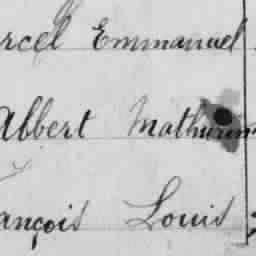 rcel Emmanuel
Albert Mathurin
ançois Louis